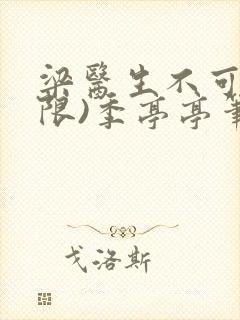 梁醫生不可
限)季亭亭筆
戈洛斯